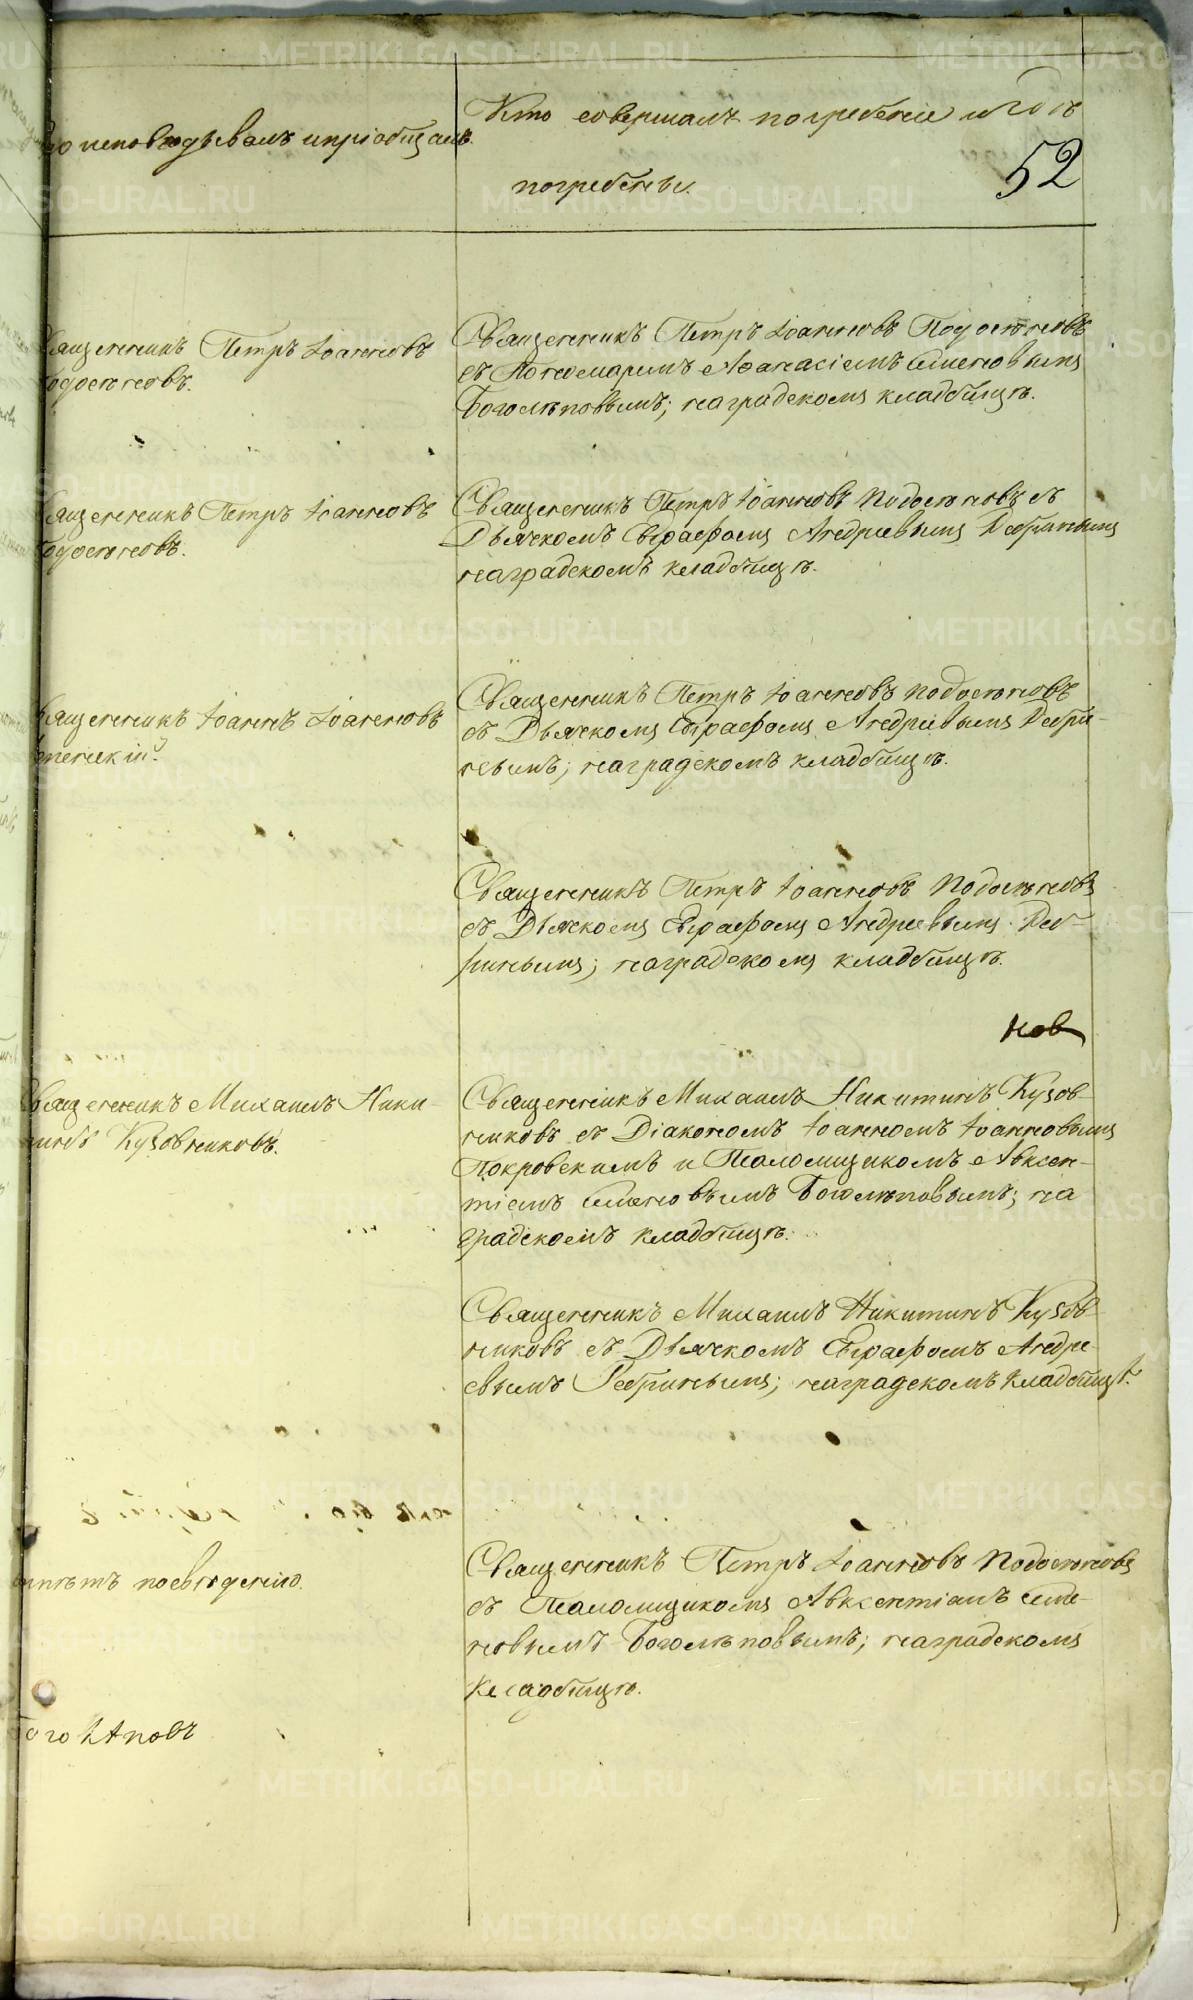 исповѣдывалъ и пріобщалъ.
Кто совершалъ погребеніе и гдѣ
погребены.
52
Священникъ Петръ Іоанновъ
Подосеновъ.
Священникъ Петръ Іоанновъ Подосеновъ
съ Пономаремъ Аѳанасіемъ Семеновымъ
Боголѣповымъ; на градскомъ кладбищѣ.
Священникъ Петръ Іоанновъ
Подосеновъ.
Священникъ Петръ Іоанновъ Подосеновъ съ
Дьячкомъ Евграфомъ Андреевымъ
на градскомъ кладбищѣ.
Священникъ Іоаннъ Іоанновъ
Священникъ Петръ Іоанновъ Подосеновъ
съ Дьячкомъ Евграфомъ Андреевымъ Ребри-
нымъ; на градскомъ кладбищѣ.
Священникъ Петръ Іоанновъ Подосеновъ
съ Дьячкомъ Евграфомъ Андреевымъ Реб-
ринымъ; на градскомъ кладбищѣ.
нов
Священникъ Михаилъ Ники-
тинъ Кузовниковъ.
Священникъ Михаилъ Никитинъ Кузов-
никовъ съ Діакономъ Іоанномъ Іоанновымъ
Покровскимъ и Псаломщикомъ Авксен-
тіемъ Семеновымъ Боголѣповымъ; на
градскомъ кладбищѣ.
Священникъ Михаилъ Никитинъ Кузов-
никовъ съ Дьячкомъ Евграфомъ Андре-
евымъ Ребринымъ; на градскомъ кладбищѣ.
Священникъ Петръ Іоанновъ Подосеновъ
съ Псаломщикомъ Авксентіемъ Семе-
новымъ Боголѣповымъ; на градскомъ
кладбищѣ.
Боголѣповъ
METRIKI.GASO-URAL.RU